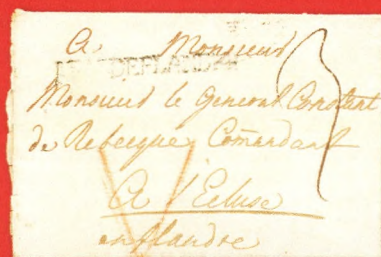 A Monsieur
DE FLANDRE
Monsieur le General Constant
de Rebecque Comandant
A l'Ecluse
en flandre